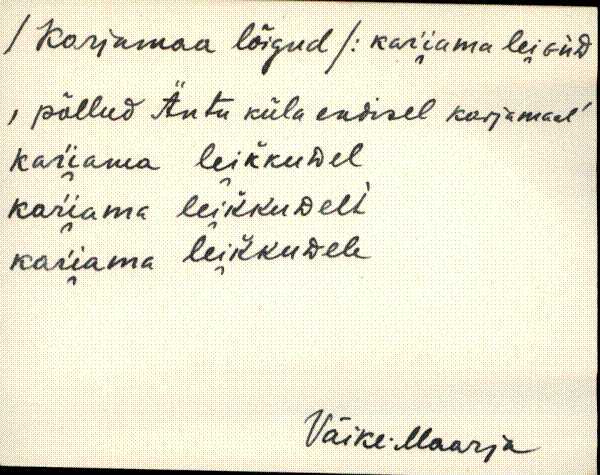 /Karjamaa lõigud/: kaŕi̯ama lei̯gùD
, põllud Äntu küla endisel karjamaal
kaŕi̯ama lei̯k̆kuDel
kaŕi̯ama lei̯k̆kuDelt̀
kaŕi̯ama lei̯k̆kuDele
Väike-Maarja